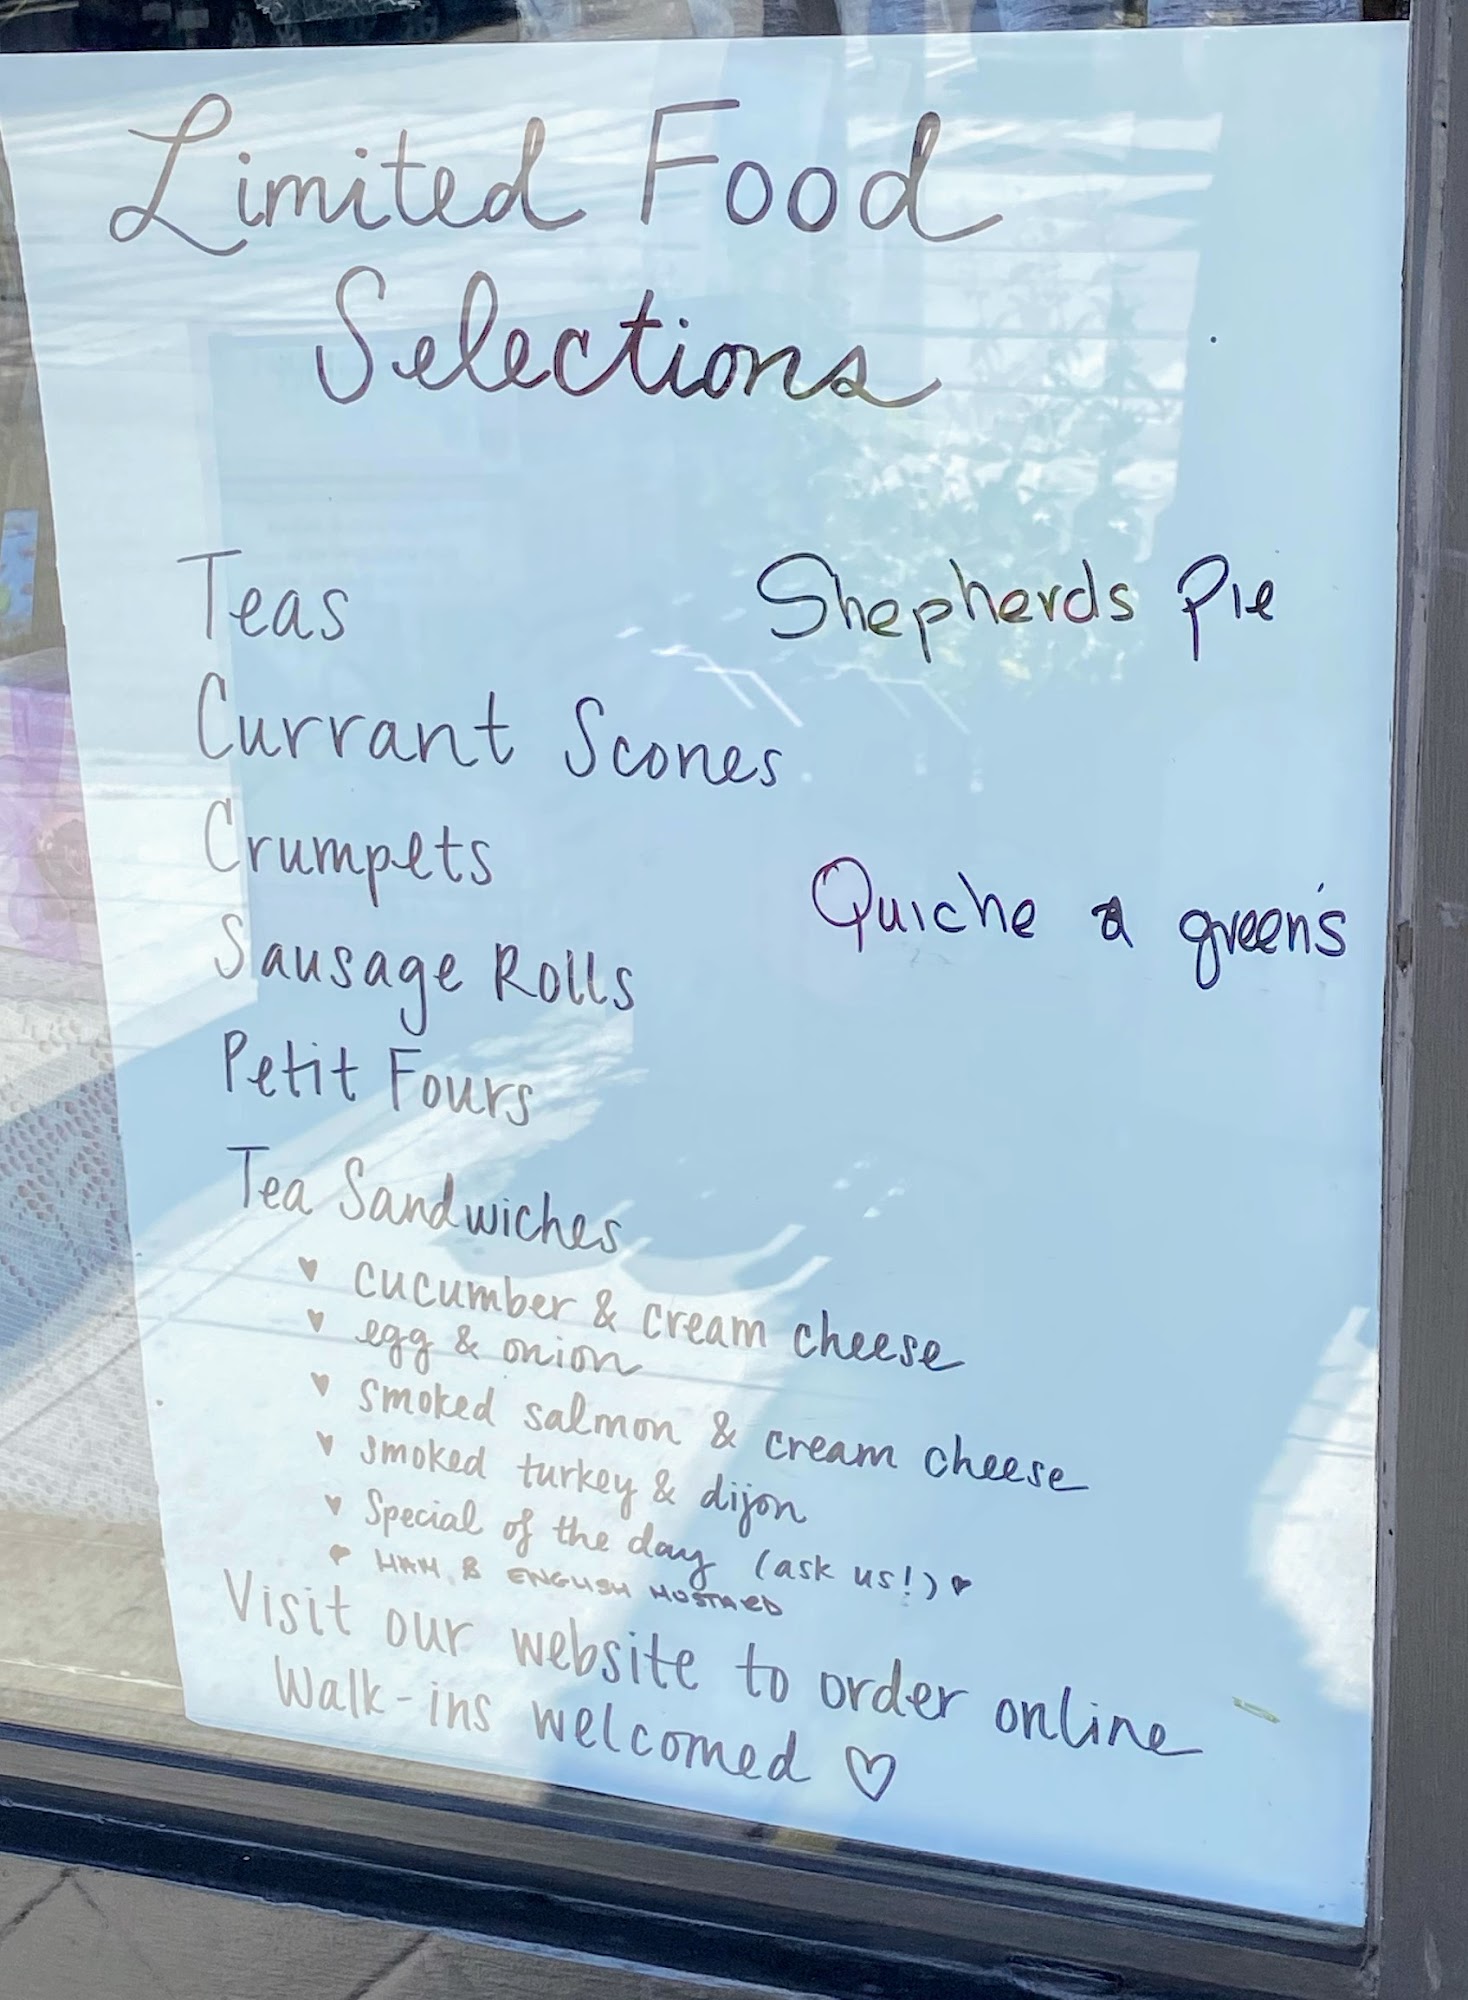 Limited Food
Selections
Teas
Shepherds Pie
Currant Scones
Crumpets
Quiche & green's
Sausage Rolls
Petit Fours
Tea Sandwiches
♥ cucumber & cream cheese
♥ egg & onion
♥ smoked salmon & cream cheese
♥ smoked turkey & dijon
♥ Special of the day (ask us!) ♥
♥ HAM & ENGLISH MUSTARD
Visit our website to order online
Walk-ins welcomed ♡